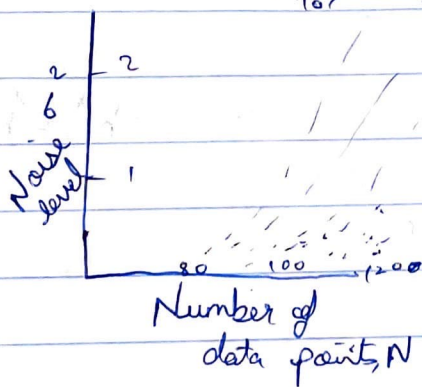 2 2
6
Noise
level
1
80 100 1200
Number of
data points, N